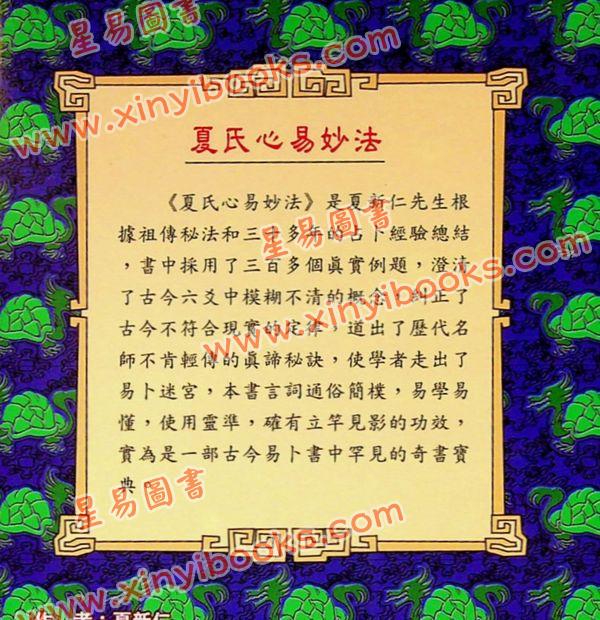 星易圖書
www.xinyibooks.com
夏氏心易妙法
《夏氏心易妙法》是夏新仁先生根
據祖傳秘法和三十多年的占卜經驗總結
，書中採用了三百多個真實例題，澄清
了古今六爻中模糊不清的概念，糾正了
古今不符合現實的定律，道出了歷代名
師不肯輕傳的真諦秘訣，使學者走出了
易卜迷宮，本書言詞通俗簡樸，易學易
懂，使用靈準，確有立竿見影的功效，
實為是一部古今易卜書中罕見的奇書寶
典。
星易圖書
www.xinyibooks.com
星易圖書
www.xinyibooks.com
作 者：夏新仁